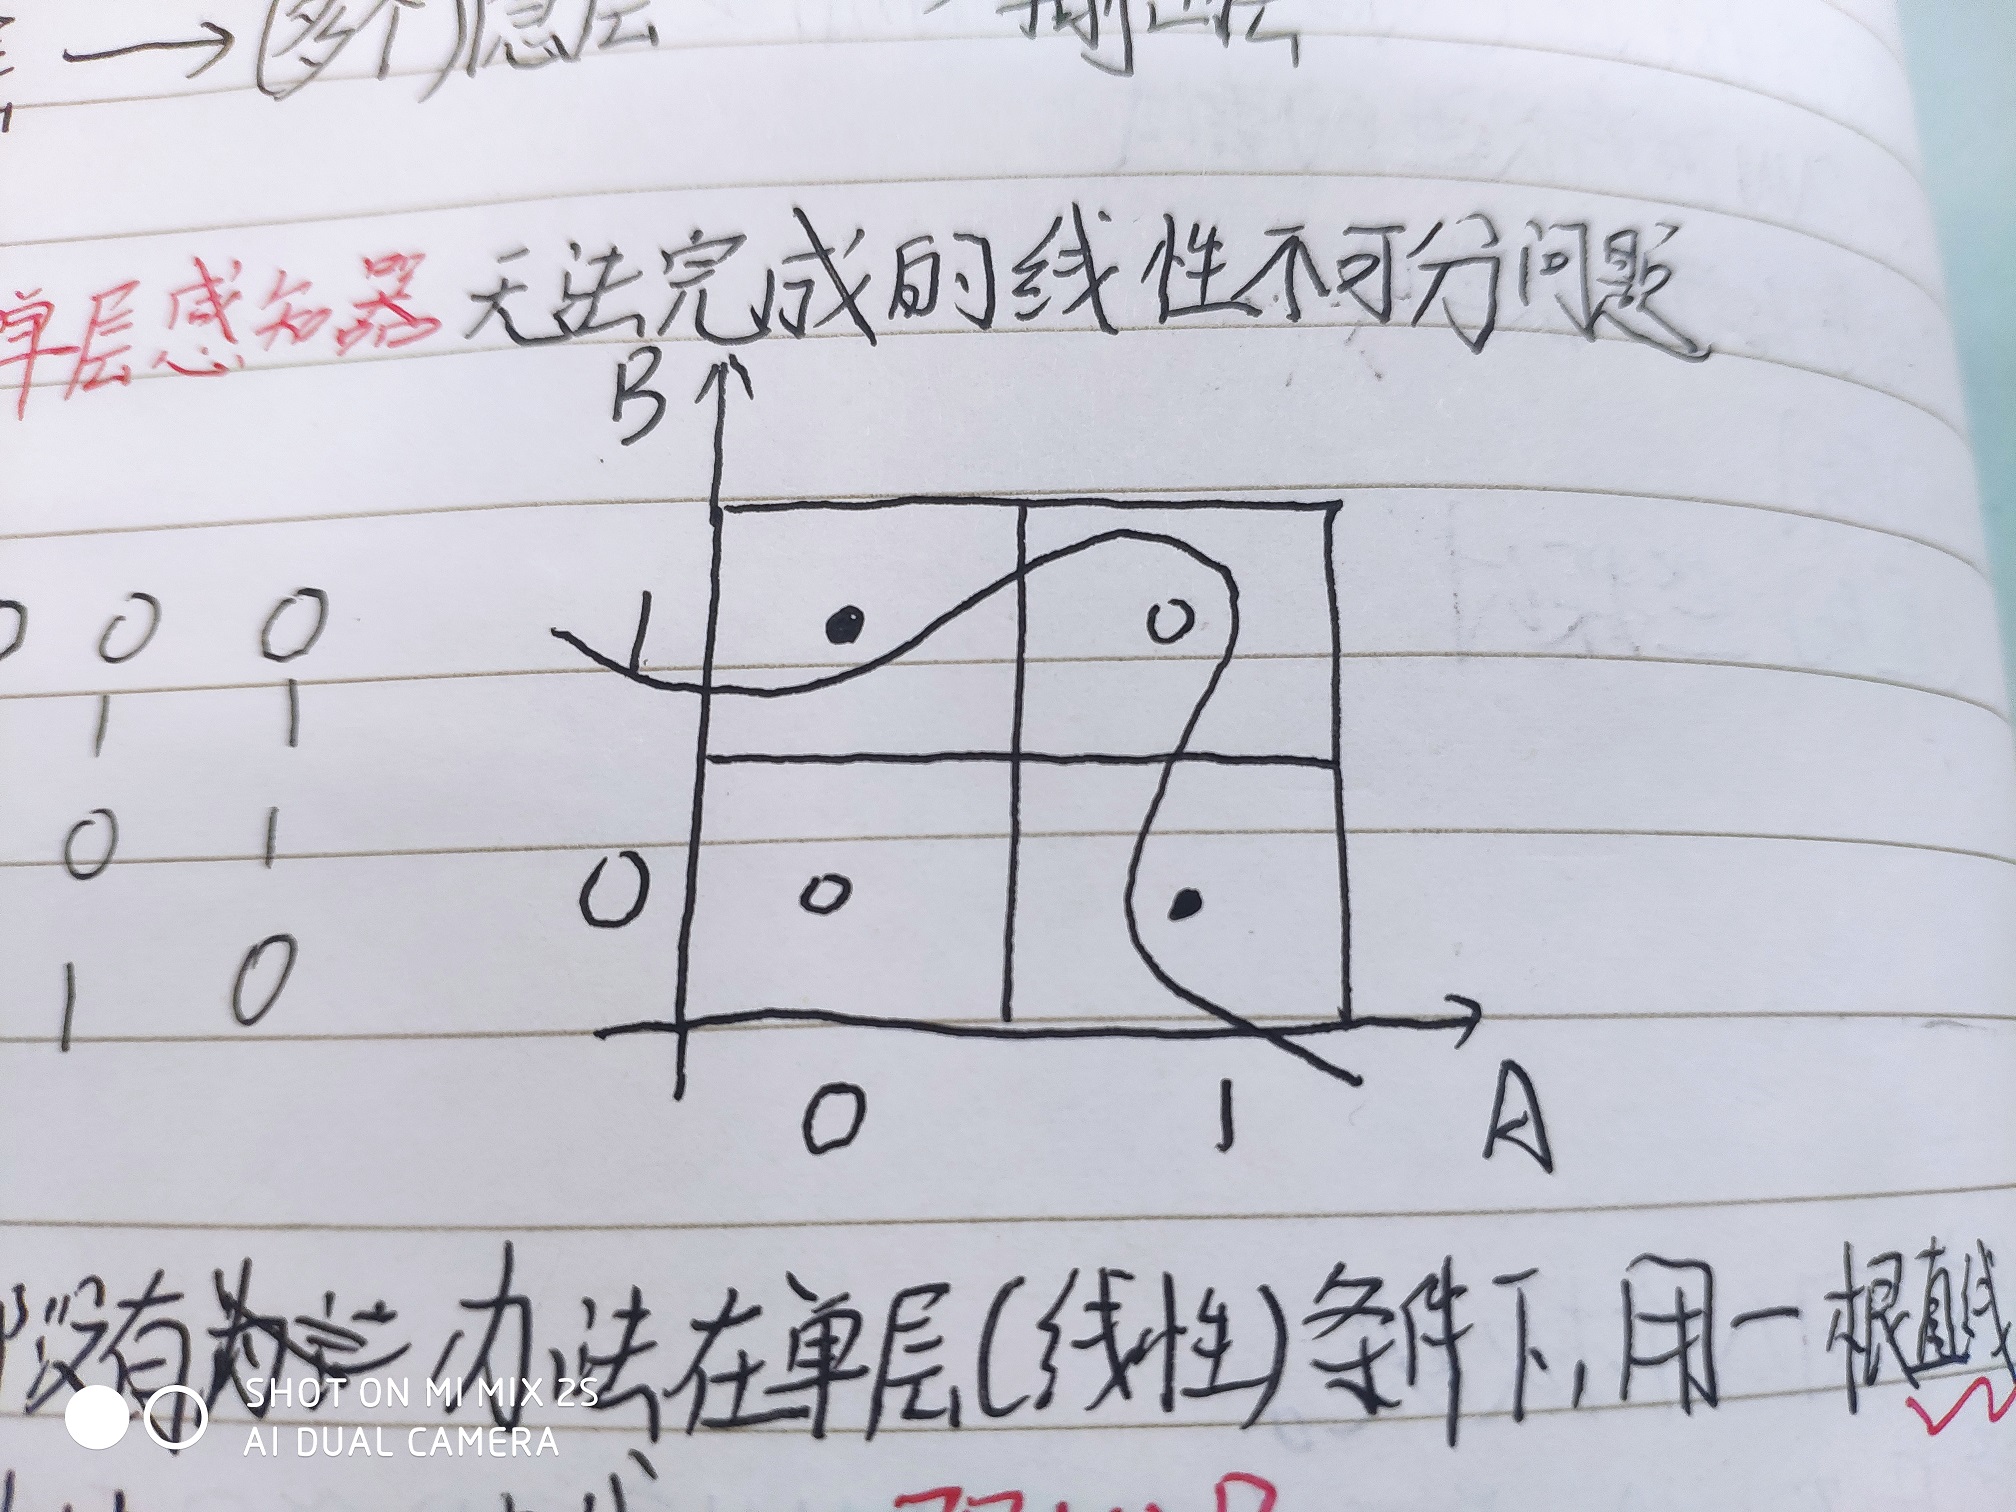 → (多个)隐层 输出层
单层感知器无法完成的线性不可分问题
B
0 0 0
1 1
0 1
1 0
1
0
0 1 A
没有办法在单层(线性)条件下,用一根直线
SHOT ON MI MIX 2S
AI DUAL CAMERA